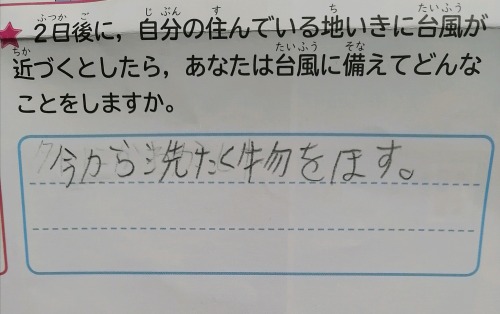 2日後に，自分の住んでいる地いきに台風が
近づくとしたら，あなたは台風に備えてどんな
ことをしますか。
今から洗たく物をほす。